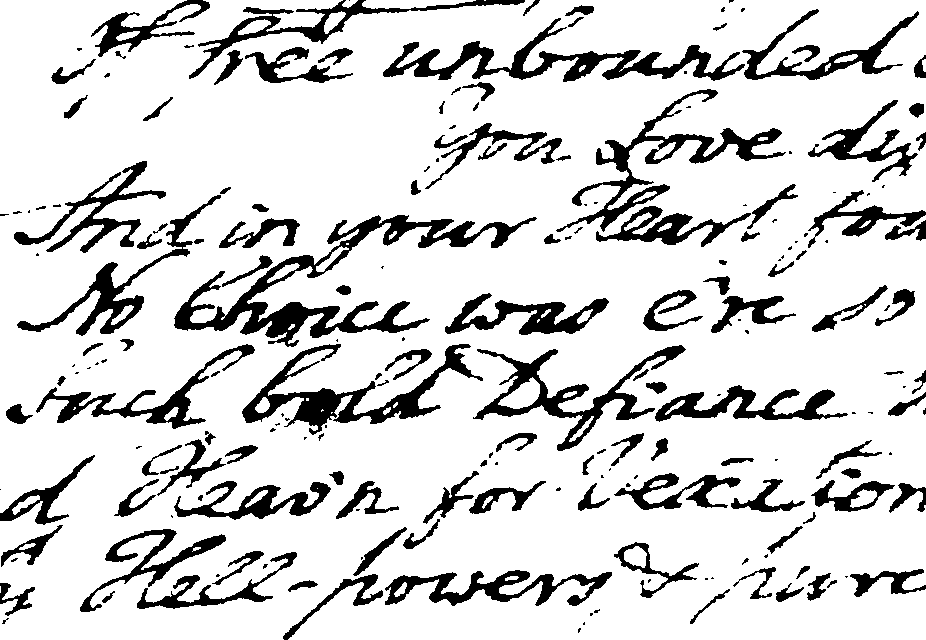 If free unbounded
You Love dis
And in your Heart fou
No Choice was e're so
Such bold Defiance
d Heav'n for Vexation
Hell-powers & pure